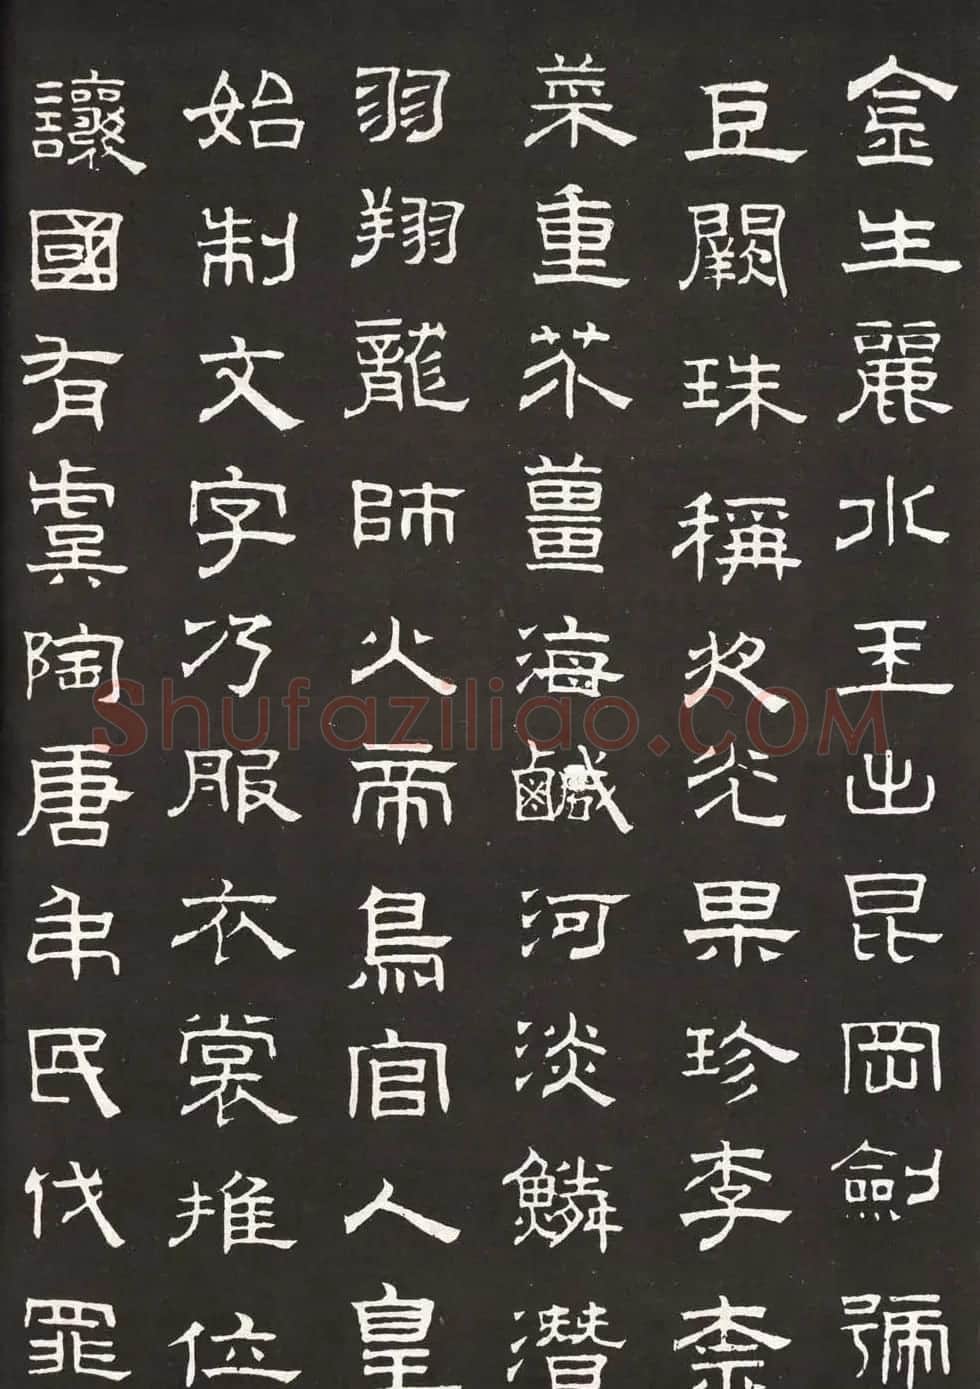 金生麗水玉出昆岡劍號
巨闕珠稱夜光果珍李柰
菜重芥薑海鹹河淡鱗潛
羽翔龍師火帝鳥官人皇
始制文字乃服衣裳推位
讓國有虞陶唐弔民伐罪
Shufaziliao.COM